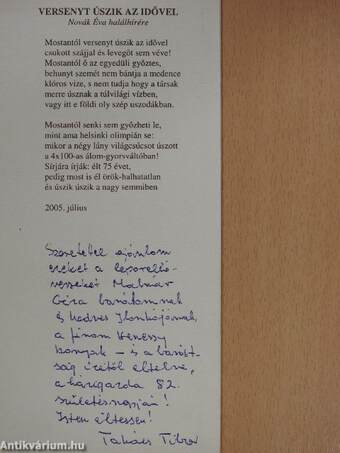 VERSENYT ÚSZIK AZ IDŐVEL
Novák Éva halálhírére
Mostantól versenyt úszik az idővel
csukott szájjal és levegőt sem véve!
Mostantól ő az egyedüli győztes,
behunyt szemét nem bántja a medence
klóros vize, s nem tudja hogy a társak
merre úsznak a túlvilági vízben,
vagy itt e földi oly szép uszodákban.
Mostantól senki sem győzheti le,
mint ama helsinki olimpián se:
mikor a négy lány világcsúcsot úszott
a 4x100-as álom-gyorsváltóban!
Sírjára írják: élt 75 évet,
pedig most is él örök-halhatatlan
és úszik úszik a nagy semmiben
2005. július
Szeretettel ajánlom
ezeket a leporelló-
verseket Molnár
Géza barátomnak
és kedves Ilonkájának,
a finom Henessy
konyak – és a barát-
ság ízétől eltelve,
a házigazda 82.
születésnapján!
Isten éltessen!
Takács Tibor
Antikvárium.hu